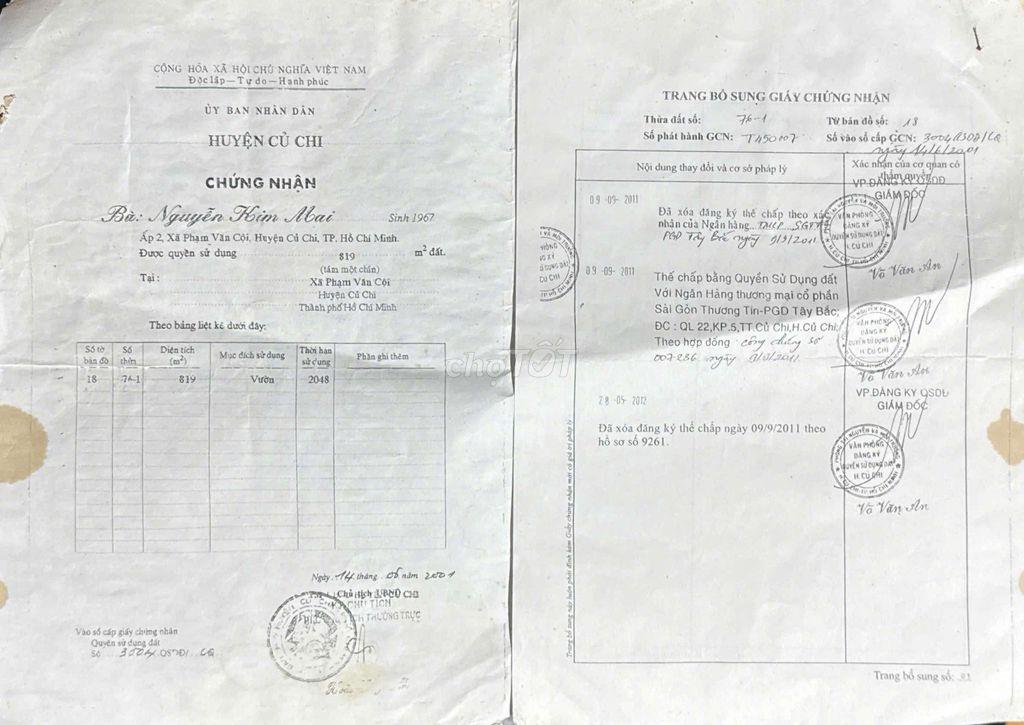 CỘNG HÒA XÃ HỘI CHỦ NGHĨA VIỆT NAM
Độc lập - Tự do - Hạnh phúc
ỦY BAN NHÂN DÂN
HUYỆN CỦ CHI
CHỨNG NHẬN
Bà: Nguyễn Kim Mai Sinh 1967
Ấp 2, Xã Phạm Văn Cội, Huyện Củ Chi, TP. Hồ Chí Minh.
Được quyền sử dụng 819 m² đất.
(tám một chín)
Tại : Xã Phạm Văn Cội
Huyện Củ Chi
Thành phố Hồ Chí Minh
Theo bảng liệt kê dưới đây:
Số tờ bản đồ Số thửa Diện tích (m²) Mục đích sử dụng Thời hạn sử dụng Phần ghi thêm
18 76-1 819 Vườn 2048
Ngày 14 tháng 06 năm 2001
Chủ tịch UBND
CHỦ TỊCH
THƯỜNG TRỰC
Vào sổ cấp giấy chứng nhận
Quyền sử dụng đất
Số 3004 QSDĐ/ CQ
TRANG BỔ SUNG GIẤY CHỨNG NHẬN
Thửa đất số: 76-1 Tờ bản đồ số: 18
Số phát hành GCN: T450007 Số vào sổ cấp GCN: 3004/QSDĐ/CQ
ngày 14/6/2001
Nội dung thay đổi và cơ sở pháp lý
Xác nhận của cơ quan có thẩm quyền
VP.ĐĂNG KÝ QSDĐ
GIÁM ĐỐC
09 -09- 2011
Đã xóa đăng ký thế chấp theo xác
nhận của Ngân hàng TMCP SGTT
PGD Tây Bắc ngày 9/9/2011
VĂN PHÒNG
ĐĂNG KÝ
QUYỀN SỬ DỤNG ĐẤT
H. CỦ CHI
Võ Văn An
09 -09- 2011
Thế chấp bằng Quyền Sử Dụng đất
Với Ngân Hàng thương mại cổ phần
Sài Gòn Thương Tín-PGD Tây Bắc;
ĐC : QL 22,KP.5,TT Củ Chi,H.Củ Chi;
Theo hợp đồng công chứng số
007-236 ngày 9/9/2011
VĂN PHÒNG
ĐĂNG KÝ
QUYỀN SỬ DỤNG ĐẤT
H. CỦ CHI
Võ Văn An
VP.ĐĂNG KÝ QSDĐ
GIÁM ĐỐC
28 -05- 2012
Đã xóa đăng ký thế chấp ngày 09/9/2011 theo
hồ sơ số 9261.
VĂN PHÒNG
ĐĂNG KÝ
QUYỀN SỬ DỤNG ĐẤT
H. CỦ CHI
Võ Văn An
Trang bổ sung này luôn phải đính kèm Giấy chứng nhận mới có giá trị pháp lý
Trang bổ sung số:
chợTỐT